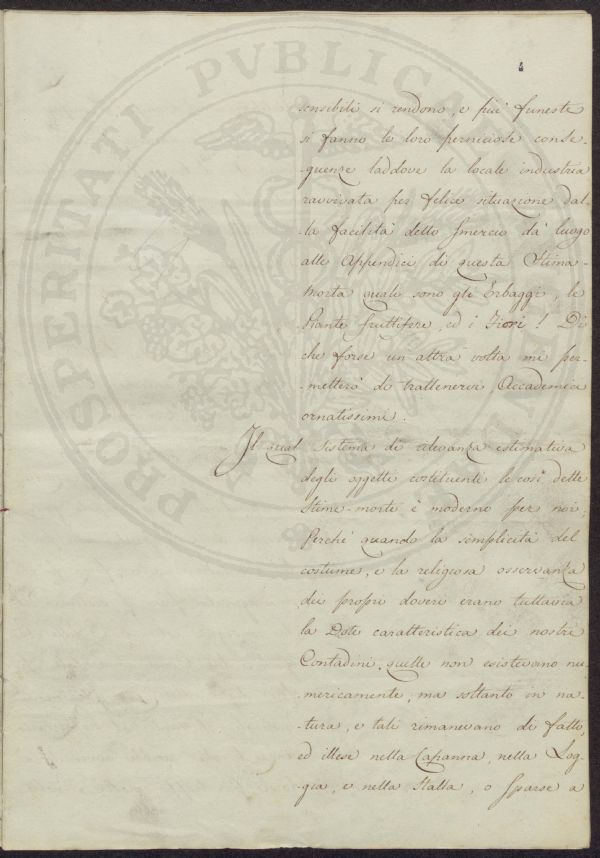 sensibili si rendono, e piu' funeste
si fanno le loro perniciose conse-
-guenze laddove la locale industria
ravvivata per felice situazione dal-
-la facilità dello smercio dà luogo
alle Appendici di questa Stima-
-morta quali sono gli Erbaggi, le
Piante fruttifere, ed i Fiori! Di
che forse un'altra volta mi per-
-metterò di trattenervi, Accademici
ornatissimi.
Il qual sistema di rilevanza estimativa
degli oggetti costituenti le così dette
Stime-morte è moderno per noi;
Perchè quando la semplicità del
costume, e la religiosa osservanza
dei propri doveri erano tuttavia
la Dote caratteristica dei nostri
Contadini, quelle non esistevano nu-
-mericamente, ma soltanto in na-
-tura, e tali rimanevano di fatto,
ed illese nella Capanna, nella Log-
-gia, e nella Stalla, o sparse a
PROSPERITATI PVBLICAE